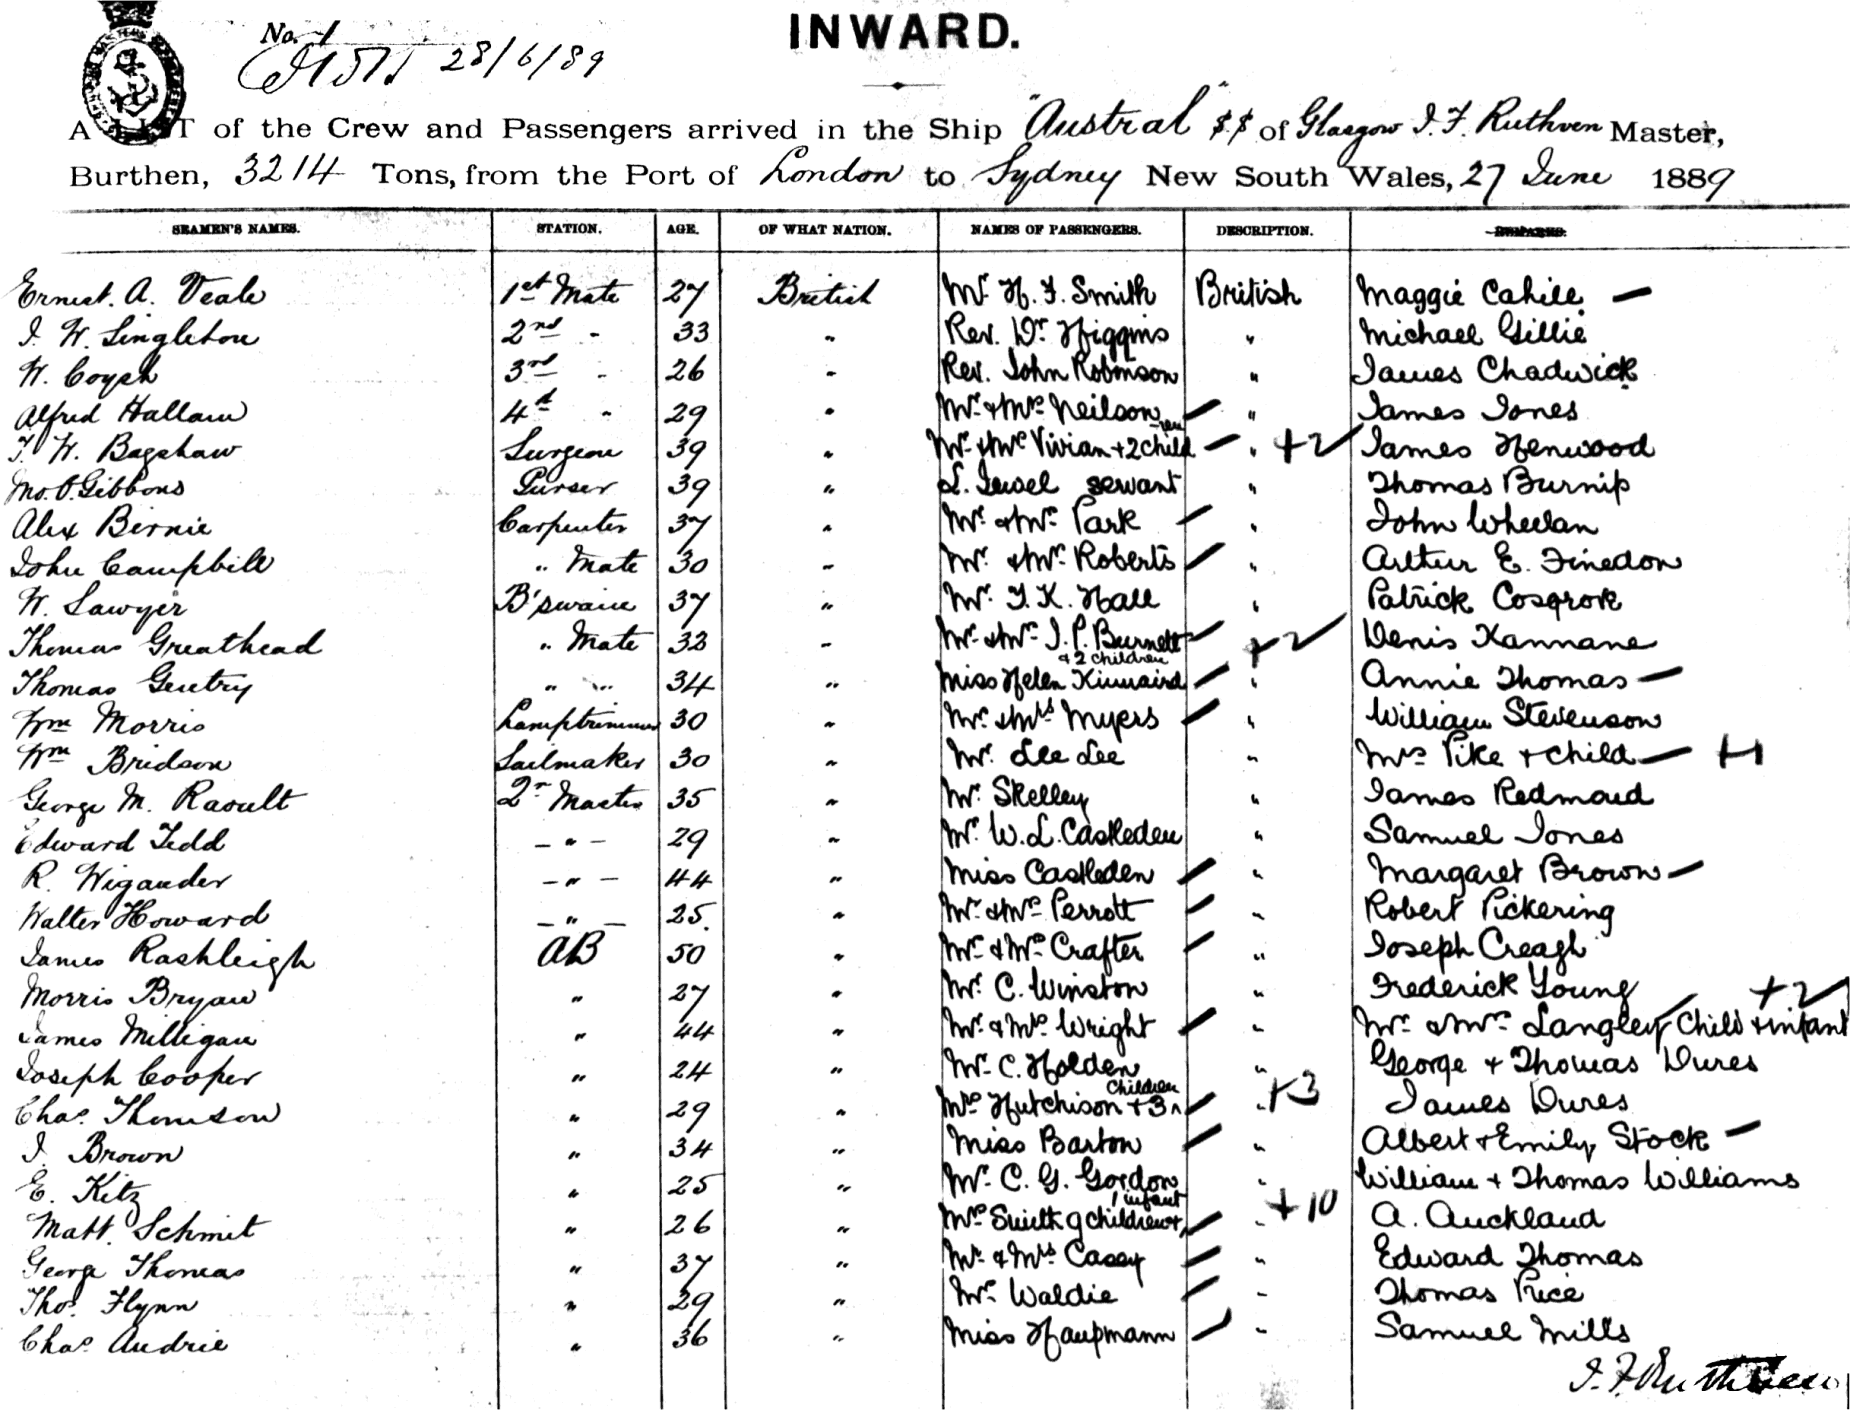 INWARD.
No. 1
28/6/89
A LIST of the Crew and Passengers arrived in the Ship "Austral" SS of Glasgow J. F. Ruthven Master,
Burthen, 3214 Tons, from the Port of London to Sydney New South Wales, 27 June 1889
SEAMEN'S NAMES. STATION. AGE. OF WHAT NATION. NAMES OF PASSENGERS. DESCRIPTION. REMARKS.
Ernest. A. Veale 1st Mate 27 British Mr. H. F. Smith British Maggie Cahill —
J. W. Singleton 2nd - 33 " Rev. Dr Higgins " Michael Gillie
W. Coysh 3rd - 26 " Rev. John Robinson " James Chadwick
Alfred Hallam 4th " 29 " Mr & Mrs Neilson — " James Jones
F. W. Bagshaw Surgeon 39 " Mr & Mrs Vivian + 2 children — " +2 James Henwood
Jno. O. Gibbons Purser 39 " L. Jewel servant " Thomas Burnip
Alex Bernie Carpenter 37 " Mr. & Mrs Park — " John Whelan
John Campbell " Mate 30 " Mr. & Mrs Roberts — " Arthur E. Finedon
W. Sawyer B'swain 37 " Mr. F. K. Hall " Patrick Cosgrove
Thomas Greathead " Mate 33 " Mr. & Mrs J. P. Burnett & 2 children — +2 Denis Kannane
Thomas Gentry " " 34 " Miss Helen Kinnaird — " Annie Thomas —
Wm Morris Lamptrimmer 30 " Mr. & Mrs Myers — " William Stevenson
Wm Bridson Sailmaker 30 " Mr. Lee Lee " Mrs Pike + child — +1
George M. Raoult 2r Master 35 " Mr. Skelley " James Redmond
Edward Tedd — " — 29 " Mr. W. L. Castleden " Samuel Jones
R. Wigander — " — 44 " Miss Castleden — " Margaret Brown —
Walter Howard — " — 25. " Mr & Mrs Perrott — " Robert Pickering
James Rashleigh AB 50 " Mr. & Mrs Crafter — " Joseph Creagh
Morris Bryan " 27 " Mr. C. Winston " Frederick Young
James Milligan " 44 " Mr. & Mrs Wright — " Mr. & Mrs Langley Child + infant +2
Joseph Cooper " 24 " Mr. C. Holden " George + Thomas Dures
Chas. Thomson " 29 " Mrs Hutchison + 3 children — " +3 James Dures
J. Brown " 34 " Miss Barton — " Albert + Emily Stock —
E. Kitz " 25 " Mr. C. G. Gordon " William + Thomas Williams
Matt. Schmit " 26 " Mrs Smith 9 children + 1 infant — " +10 A. Auckland
George Thomas " 37 " Mr. & Mrs Casey — " Edward Thomas
Thos. Flynn " 29 " Mrs Waldie — " Thomas Price
Chas. Audrie " 36 " Miss Haupmann — " Samuel Mills
J. F. Ruthven